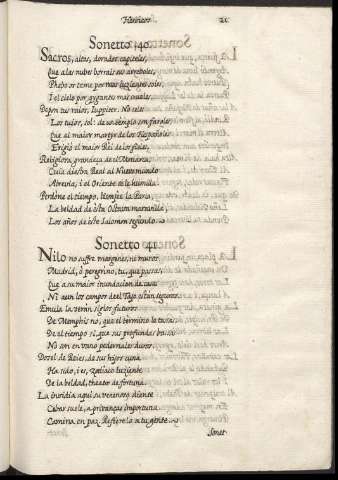 Heroicos.
21
Sonetto 40.
Sacros, altos, dorados capiteles,
Que a las nubes borrais sus arreboles,
Phebo os teme por mas luzientes soles,
I el cielo por gygantes mas crueles.
Depon tus raios, Iuppiter. No celes
Los tuios, sol: de un templo son faroles,
Que al maior martyr de los Españoles
Erigiò el maior Rei de los fieles,
Religiosa grandeza de el Monarca
Cuia diestra Real al Nueuo mundo
Abreuia, i el Oriente se le humilla.
Perdone el tiempo, lisonjee la Parca
La beldad de esta Octaua marauilla,
Los años de este Salomon segundo.
Sonetto 41.
Nilo no suffre margenes, ni muros
Madrid, ò peregrino, tu, que passas,
Que a su maior inundacion de casas
Ni aun los campos del Tajo estàn seguros.
Emula la veràn siglos futuros
De Memphis no, que el termino le tasa:
De el tiempo si, que sus profundas basas
No son en vano pedernales duros.
Dosel de Reies, de sus hijos cuna
Ha sido, i es, zodiaco luziente
De la beldad, theatro de fortuna.
La inuidia aqui su venenoso diente
Cebar suele, a priuanças importuna.
Camina en paz. Refierelo a tu gente.
Sonet-